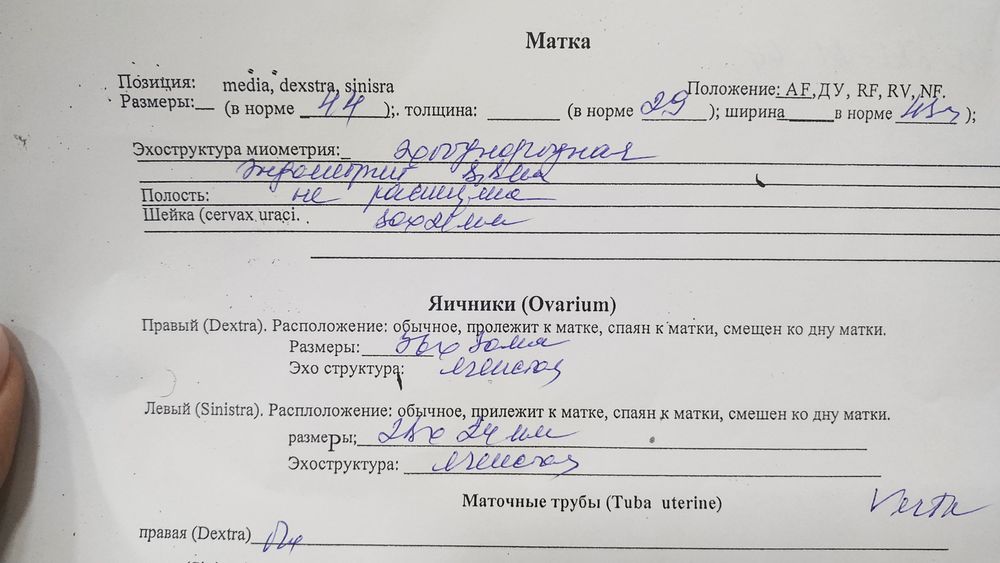 Матка
Позиция: media, dexstra, sinisra
Положение: AF, ДУ, RF, RV, NF.
Размеры:__ (в норме 44 );. толщина: ______ (в норме 29 ); ширина_____ в норме 43 );
Эхоструктура миометрия:_ эхооднородная
Эндометрий
Полость: не расширена
Шейка (cervax uraci. 30x21мм
Яичники (Ovarium)
Правый (Dextra). Расположение: обычное, пролежит к матке, спаян к матки, смещен ко дну матки.
Размеры:
Эхо структура: ячеистая
Левый (Sinistra). Расплоложение: обычное, прилежит к матке, спаян к матки, смешен ко дну матки.
размеры; 24 мм
Эхоструктура: ячеистая
Маточные трубы (Tuba uterine)
правая (Dextra)